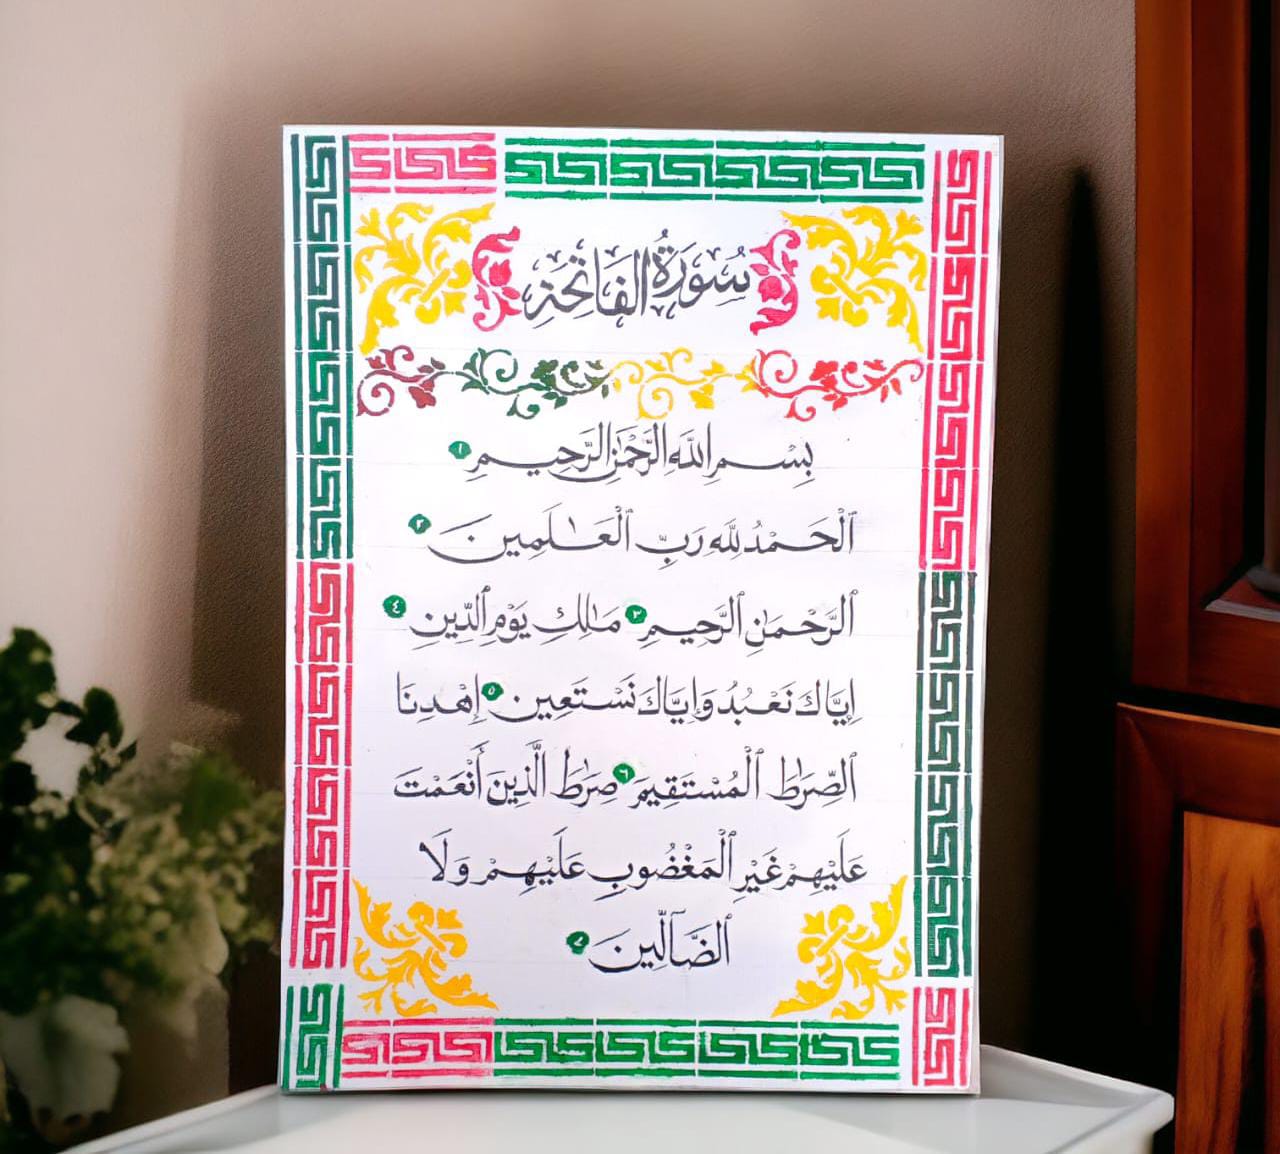 سُورَةُ الفَاتِحَةِ
بِسْمِ اللَّهِ الرَّحْمَٰنِ الرَّحِيمِ ١
ٱلْحَمْدُ لِلَّهِ رَبِّ ٱلْعَٰلَمِينَ ٢
ٱلرَّحْمَٰنِ ٱلرَّحِيمِ ٣ مَٰلِكِ يَوْمِ ٱلدِّينِ ٤
إِيَّاكَ نَعْبُدُ وَإِيَّاكَ نَسْتَعِين ٥ إِهْدِنَا
ٱلصِّرَٰطَ ٱلْمُسْتَقِيمَ ٦ صِرَٰطَ الَّذِينَ أَنْعَمْتَ
عَلَيْهِمْ غَيْرِ ٱلْمَغْضُوبِ عَلَيْهِمْ وَلَا
ٱلضَّآلِّينَ ٧